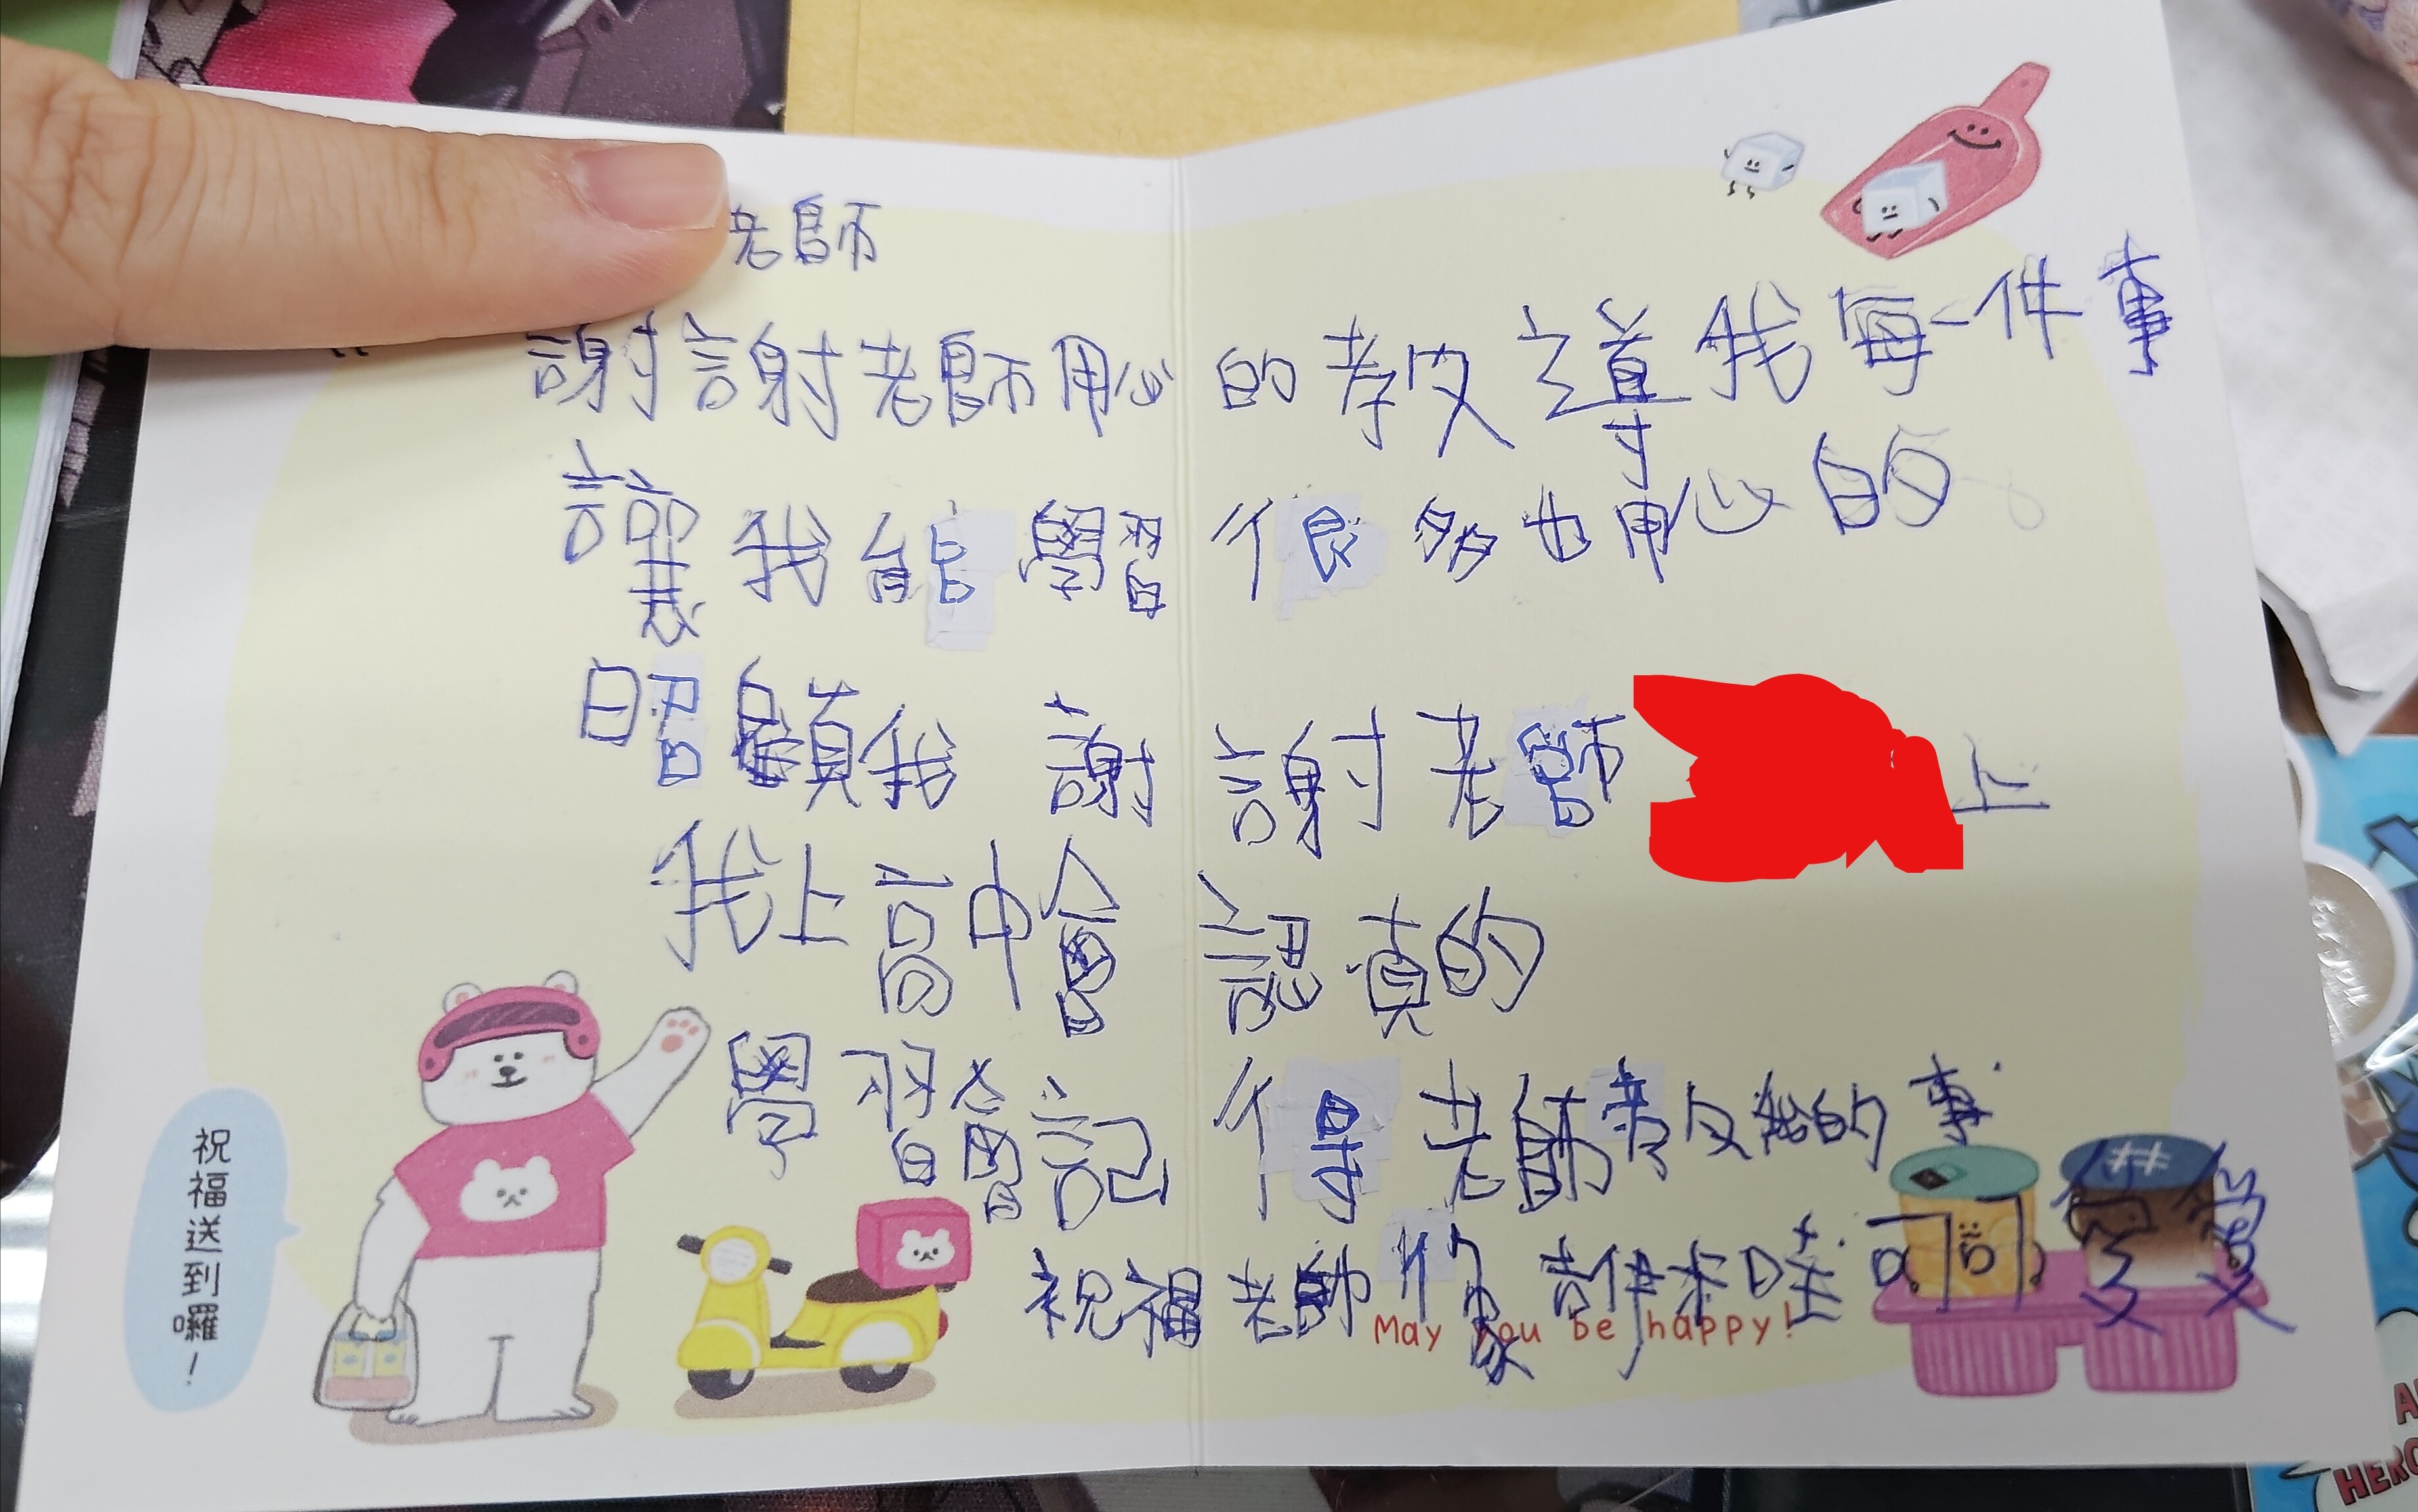 老師
謝謝老師用心的教導我每一件事
讓我能學習很多也用心的
照顧我 謝謝老師 上
我上課中會認真的
學習會記得老師教我的事
祝福老師像吉伊卡哇可愛
祝福送到囉！
May you be happy!